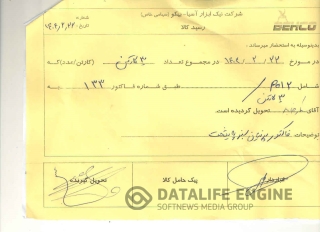 شرکت نیک ابزار آسیا - بیکو (سهامی خاص)
رسید کالا
شماره :
تاریخ : ۱۴۰۲,۲,۲۶
BEMCO
بدینوسیله به استحضار میرساند .
در مورخ ۱۴۰۲ , ۲ , ۲۶ در مجموع تعداد ۳ کارتن (کارتن/عدد) که
شامل طبق شماره فاکتور ۱۳۳ به
۳ کارتن
آقای تحویل گردیده است.
توضیحات فاکتور
انباردار
پیک حامل کالا
تحویل گیرنده
DATALIFE ENGINE
SOFTNEWS MEDIA GROUP